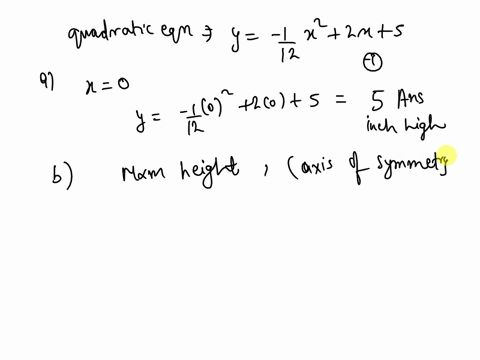 quadratic eqn ⇒ y = -1/12 x² + 2x + 5
①
a) x = 0
y = -1/12 (0)² + 2(0) + 5 = 5 Ans
inch high
b) Maxm height, (axis of symmetry